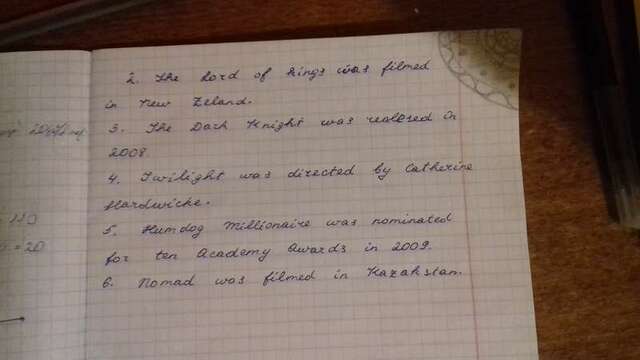 2. The Lord of kings was filmed
in New Zeland.
3. The Dark Knight was realised in
2008.
4. Twilight was directed by Catherine
Hardwicke.
5. Humdog Millionaire was nominated
for ten Academy Awards in 2009.
6. Nomad was filmed in Kazakhstan.